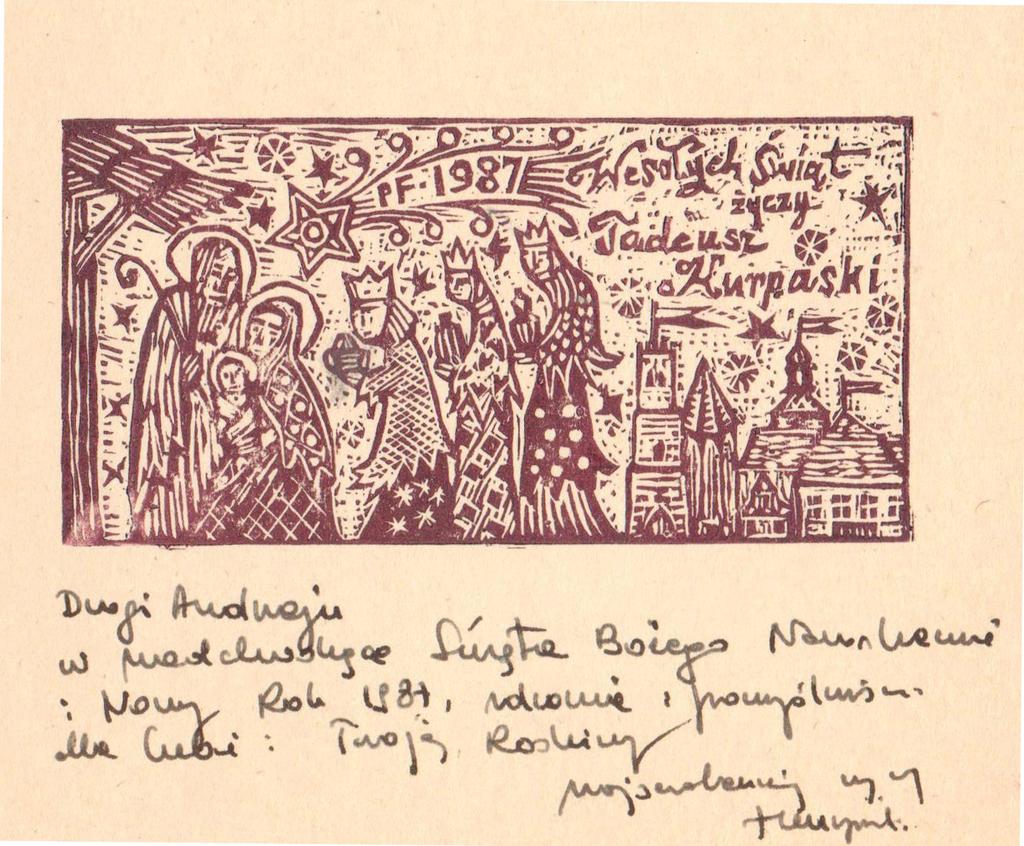 PF-1987
Wesołych Świąt
życzy
Tadeusz
Kurpaski
Drogi Andrzeju
w nadchodzące Święta Bożego Narodzenia
i Nowy Rok 1987, zdrowia i pomyślności
dla Ciebie i Twojej Rodziny
najserdeczniej